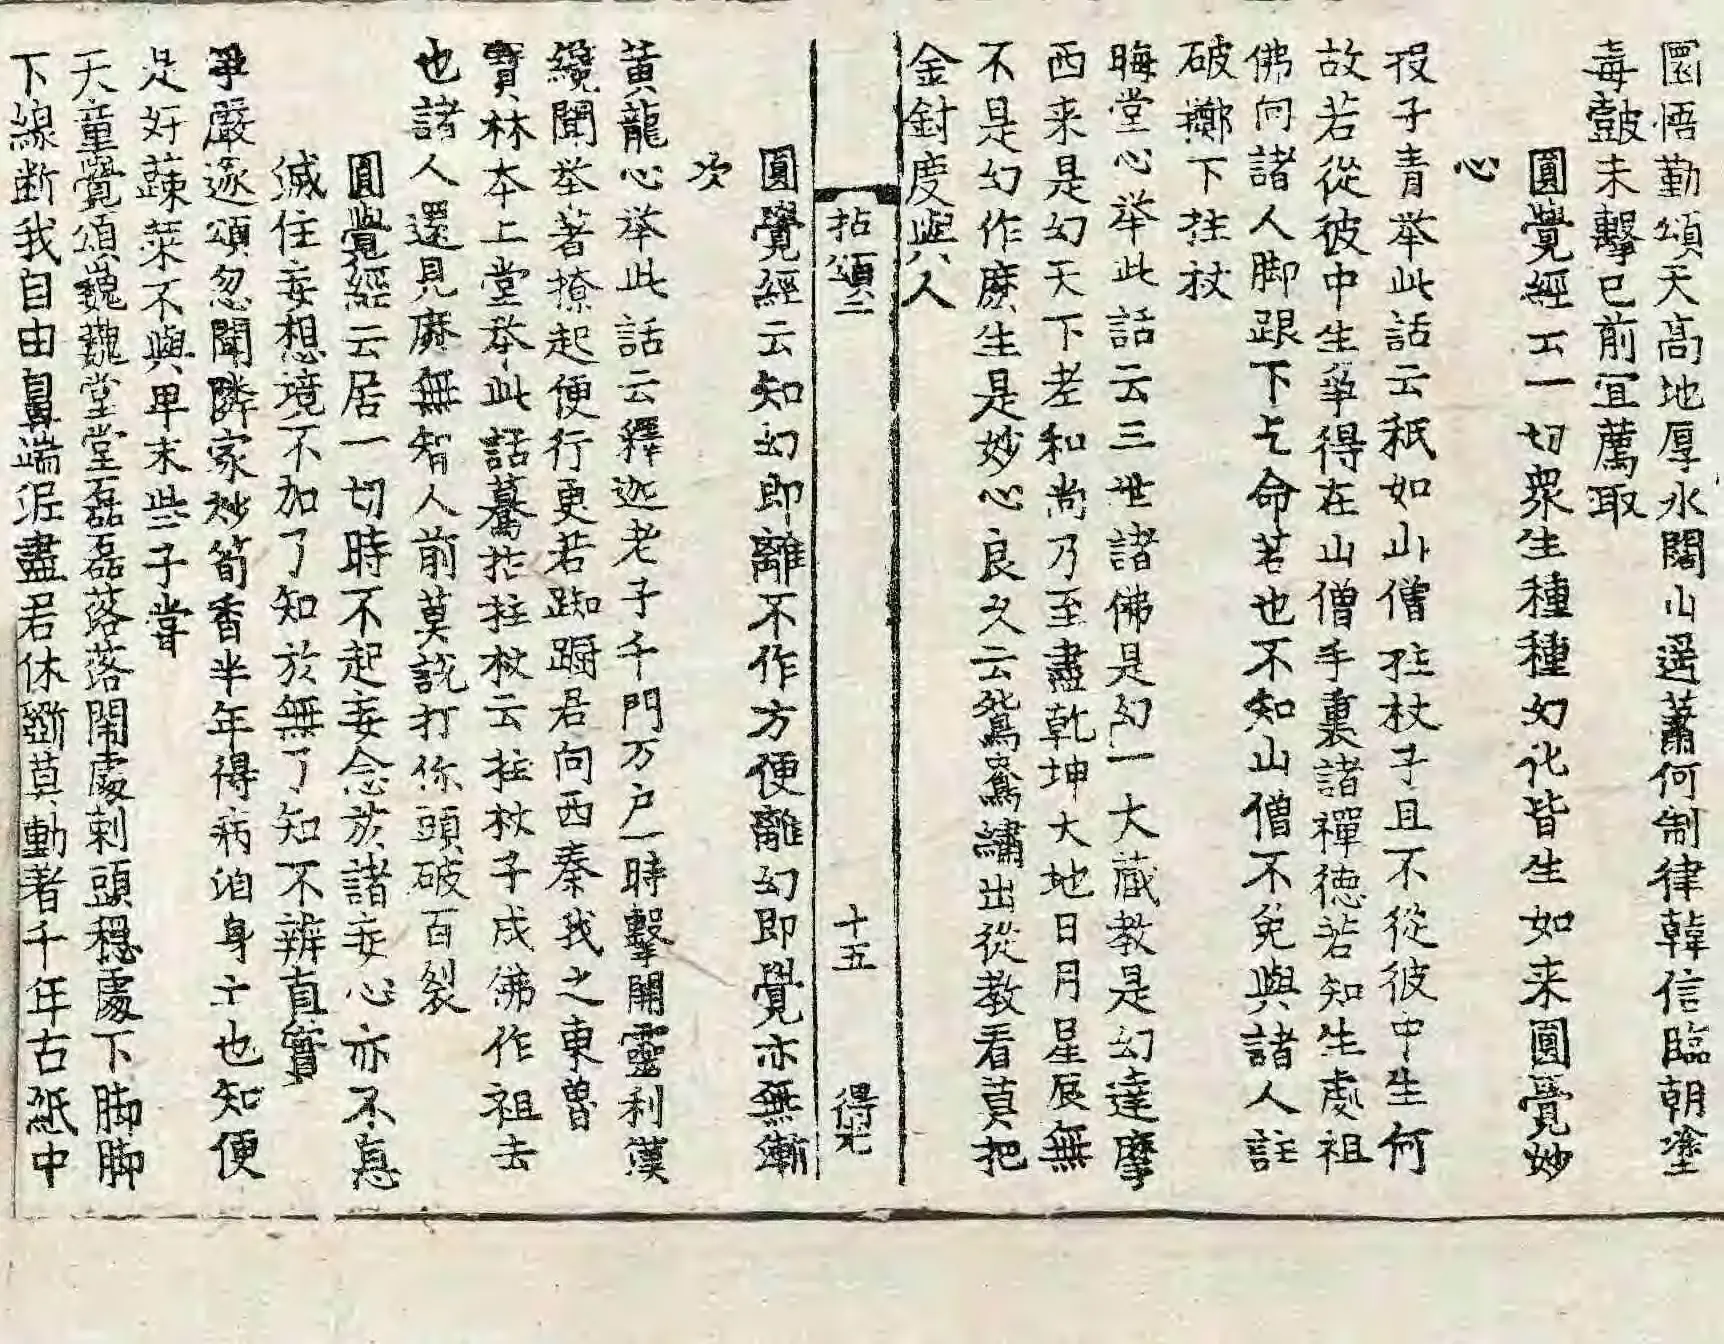 圜悟勤頌天高地厚水闊山遥蕭何制律韓信臨朝塗
毒皷未擊已前宜薦取
圓覺經云一切衆生種種幻化皆生如来圓覺妙
心
投子青举此話云秖如山僧拄杖子且不從彼中生何
故若從彼中生争得在山僧手裏諸禪德若知生處祖
佛向諸人脚跟下乞命若也不知山僧不免與諸人註
破擲下拄杖
晦堂心举此話云三世諸佛是幻一大蔵教是幻達摩
西来是幻天下老和尚乃至盡乾坤大地日月星辰無
不是幻作麽生是妙心良久云鴛鴦繡出從教看莫把
金針度與人
拈頌二 十五 得
圓覺經云知幻即離不作方便離幻即覺亦無漸
次
黄龍心举此話云釋迦老子千門万户一時擊開靈利漢
纔聞举著撩起便行更若踟蹰君向西秦我之東魯
寳林本上堂举此話驀拈拄杖云拄杖子成佛作祖去
也諸人還見麽無智人前莫説打你頭破百裂
圓覺經云居一切時不起妄念於諸妄心亦不息
滅住妄想境不加了知於無了知不辨真實
爭嚴遂頌忽聞隣家炒筍香半年得病泊身亡也知便
是好蔬菜不與卑末些子嘗
天童覺頌巍巍堂堂磊磊落落閙處刺頭穩處下脚脚
下線断我自由鼻端泥盡君休斵莫動著千年古紙中